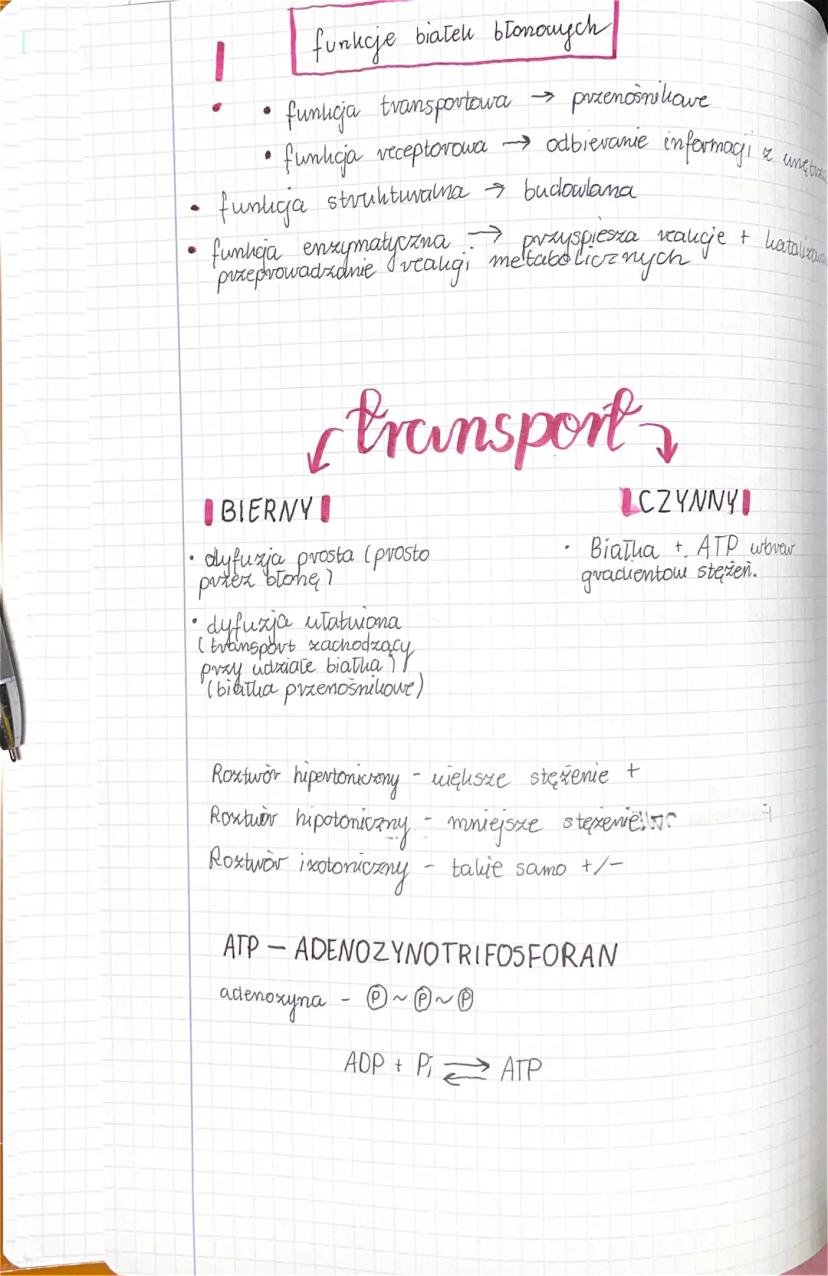 funkcje białek błonowych
• funkcja transportowa → przenośnikowe
• funkcja receptorowa → odbieranie informacji z
• funkcja strukturalna → budowlana
• funkcja enzymatyczna → przyspiesza reakcje +
przeprowadzanie reakcji metabolicznych
transport
BIERNY
• dyfuzja prosta (prosto
przez błonę)
• dyfuzja ułatwiona
(transport zachodzący
przy udziale białka)
(białka przenośnikowe)
CZYNNY
• Białka + ATP wbrew
gradientow stężeń.
Roztwór hipertoniczny - większe stężenie +
Roztwór hipotoniczny - mniejsze stężenie
Roztwór izotoniczny - takie samo +/-
ATP — ADENOZYNOTRIFOSFORAN
adenozyna - Ⓟ~Ⓟ~Ⓟ
ADP + Pi ⇄ ATP